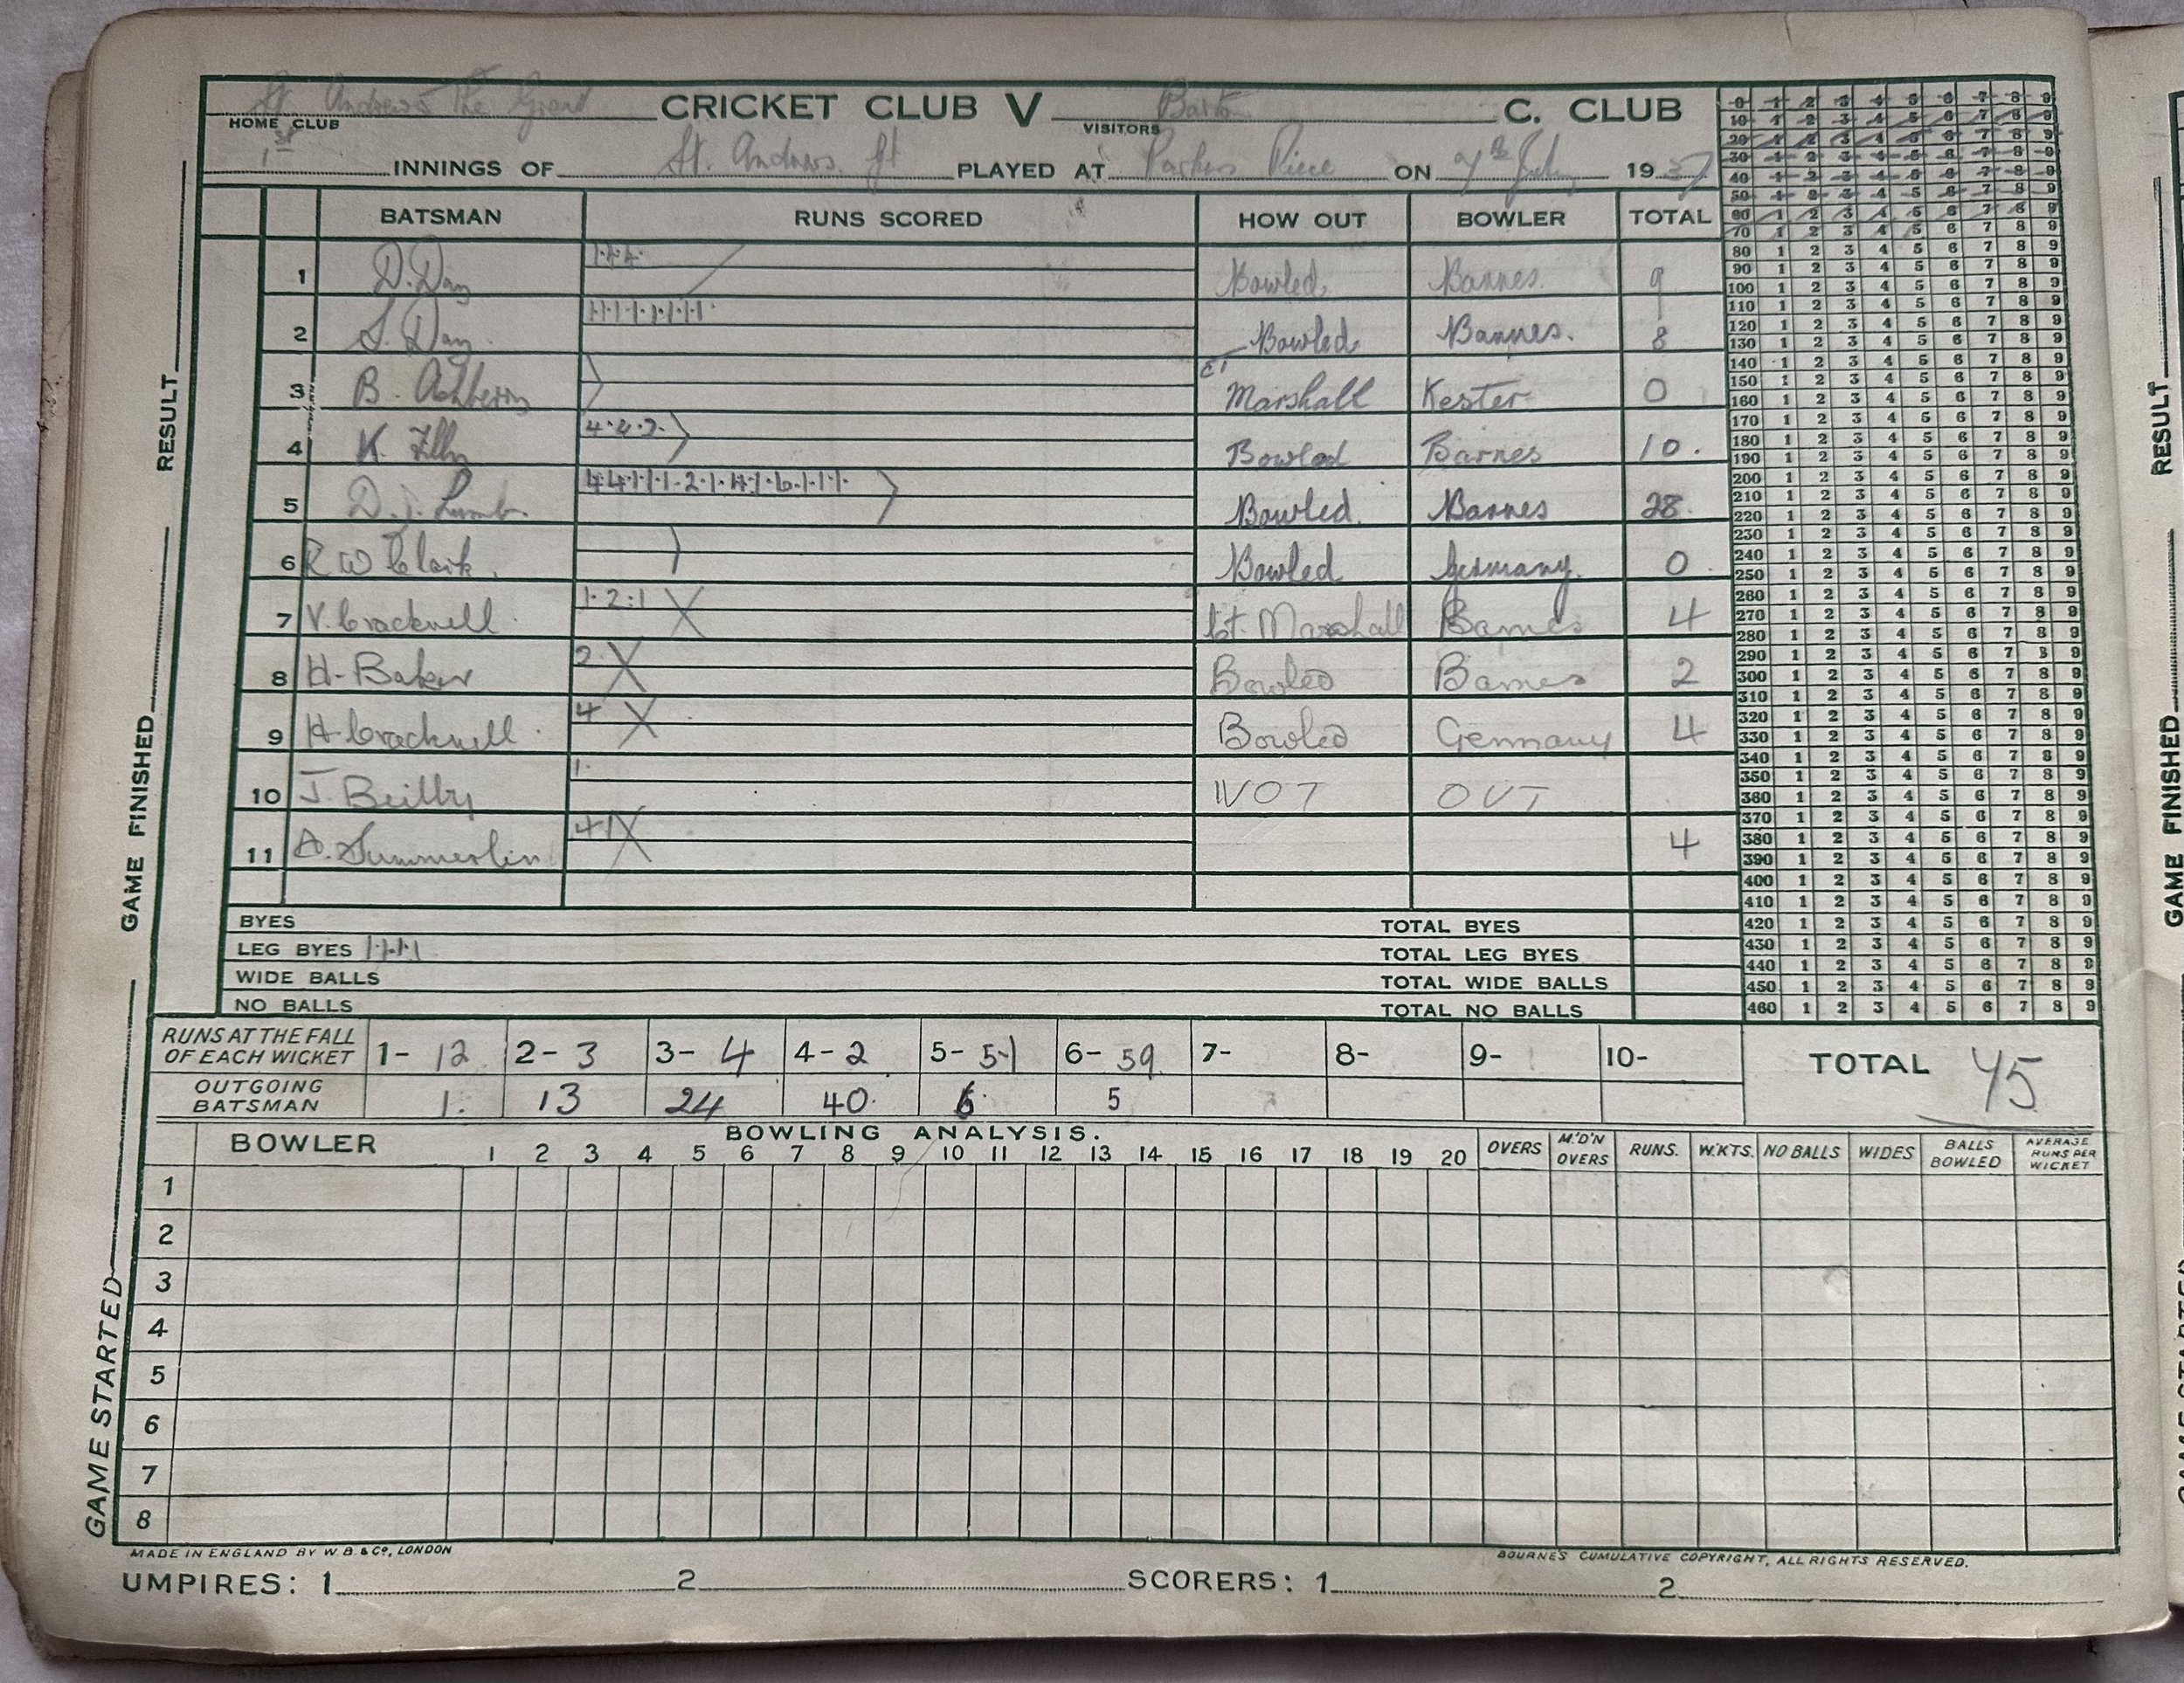 St. Andrews The Great CRICKET CLUB V Barton C. CLUB
HOME CLUB VISITORS
1st INNINGS OF St. Andrews Gt PLAYED AT Parkers Piece ON 7th July 1937
BATSMAN RUNS SCORED HOW OUT BOWLER TOTAL
1 D. Day 1·4·4· Bowled Barnes 9
2 S. Day 1·1·1·1·1·1·1·1· Bowled Barnes. 8
3 B. ct Marshall Kester 0
4 K. 4·4·2· Bowled Barnes 10.
5 D.J. Lumb. 4·4·1·1·1·2·1·4·1·6·1·1·1· Bowled. Barnes 28.
6 R W Clark. Bowled Germany. 0.
7 V. Cracknell. 1·2·1 ct. Marshall Barnes 4
8 H. Baker 2· Bowled Barnes 2
9 H. Cracknell. 4 Bowled Germany 4
10 J. Beilby 1. NOT OUT
11 Summerlin 4 4
BYES TOTAL BYES
LEG BYES 1·1·1·1 TOTAL LEG BYES
WIDE BALLS TOTAL WIDE BALLS
NO BALLS TOTAL NO BALLS
RUNS AT THE FALL OF EACH WICKET 1- 12 2- 3 3- 4 4- 2 5- 51 6- 59 7- 8- 9- 10- TOTAL 75
OUTGOING BATSMAN 1. 13 24 40. 6 5
BOWLING ANALYSIS.
BOWLER 1 2 3 4 5 6 7 8 9 10 11 12 13 14 15 16 17 18 19 20 OVERS M'D'N OVERS RUNS. W'KTS. NO BALLS WIDES BALLS BOWLED AVERAGE RUNS PER WICKET
1
2
3
4
5
6
7
8
MADE IN ENGLAND BY W. B. & Co, LONDON BOURNE'S CUMULATIVE COPYRIGHT, ALL RIGHTS RESERVED.
UMPIRES: 1 2 SCORERS: 1 2
GAME STARTED GAME FINISHED RESULT
0 1 2 3 4 5 6 7 8 9
10 1 2 3 4 5 6 7 8 9
20 1 2 3 4 5 6 7 8 9
30 1 2 3 4 5 6 7 8 9
40 1 2 3 4 5 6 7 8 9
50 1 2 3 4 5 6 7 8 9
60 1 2 3 4 5 6 7 8 9
70 1 2 3 4 5 6 7 8 9
80 1 2 3 4 5 6 7 8 9
90 1 2 3 4 5 6 7 8 9
100 1 2 3 4 5 6 7 8 9
110 1 2 3 4 5 6 7 8 9
120 1 2 3 4 5 6 7 8 9
130 1 2 3 4 5 6 7 8 9
140 1 2 3 4 5 6 7 8 9
150 1 2 3 4 5 6 7 8 9
160 1 2 3 4 5 6 7 8 9
170 1 2 3 4 5 6 7 8 9
180 1 2 3 4 5 6 7 8 9
190 1 2 3 4 5 6 7 8 9
200 1 2 3 4 5 6 7 8 9
210 1 2 3 4 5 6 7 8 9
220 1 2 3 4 5 6 7 8 9
230 1 2 3 4 5 6 7 8 9
240 1 2 3 4 5 6 7 8 9
250 1 2 3 4 5 6 7 8 9
260 1 2 3 4 5 6 7 8 9
270 1 2 3 4 5 6 7 8 9
280 1 2 3 4 5 6 7 8 9
290 1 2 3 4 5 6 7 8 9
300 1 2 3 4 5 6 7 8 9
310 1 2 3 4 5 6 7 8 9
320 1 2 3 4 5 6 7 8 9
330 1 2 3 4 5 6 7 8 9
340 1 2 3 4 5 6 7 8 9
350 1 2 3 4 5 6 7 8 9
360 1 2 3 4 5 6 7 8 9
370 1 2 3 4 5 6 7 8 9
380 1 2 3 4 5 6 7 8 9
390 1 2 3 4 5 6 7 8 9
400 1 2 3 4 5 6 7 8 9
410 1 2 3 4 5 6 7 8 9
420 1 2 3 4 5 6 7 8 9
430 1 2 3 4 5 6 7 8 9
440 1 2 3 4 5 6 7 8 9
450 1 2 3 4 5 6 7 8 9
460 1 2 3 4 5 6 7 8 9
RESULT
GAME FINISHED